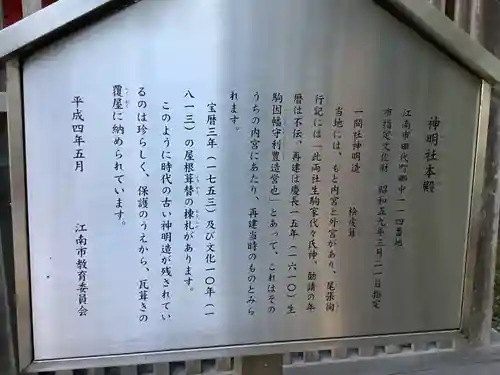 神明社本殿
江南市田代町郷中一一四番地
市指定文化財　昭和五九年三月二一日指定
一間社神明造　　桧皮葺
当地には、もと内宮と外宮があり、尾張徇
行記には「此両社生駒家代々氏神、勧請の年
暦は不伝、再建は慶長一五年（一六一〇）生
駒因幡守利豊造営也」とあって、これはその
うちの内宮にあたり、再建当時のものとみら
れます。
宝暦三年（一七五三）及び文化一〇年（一
八一三）の屋根葺替の棟札があります。
このように時代の古い神明造が残されてい
るのは珍らしく、保護のうえから、瓦葺きの
覆屋に納められています。
平成四年五月
江南市教育委員会